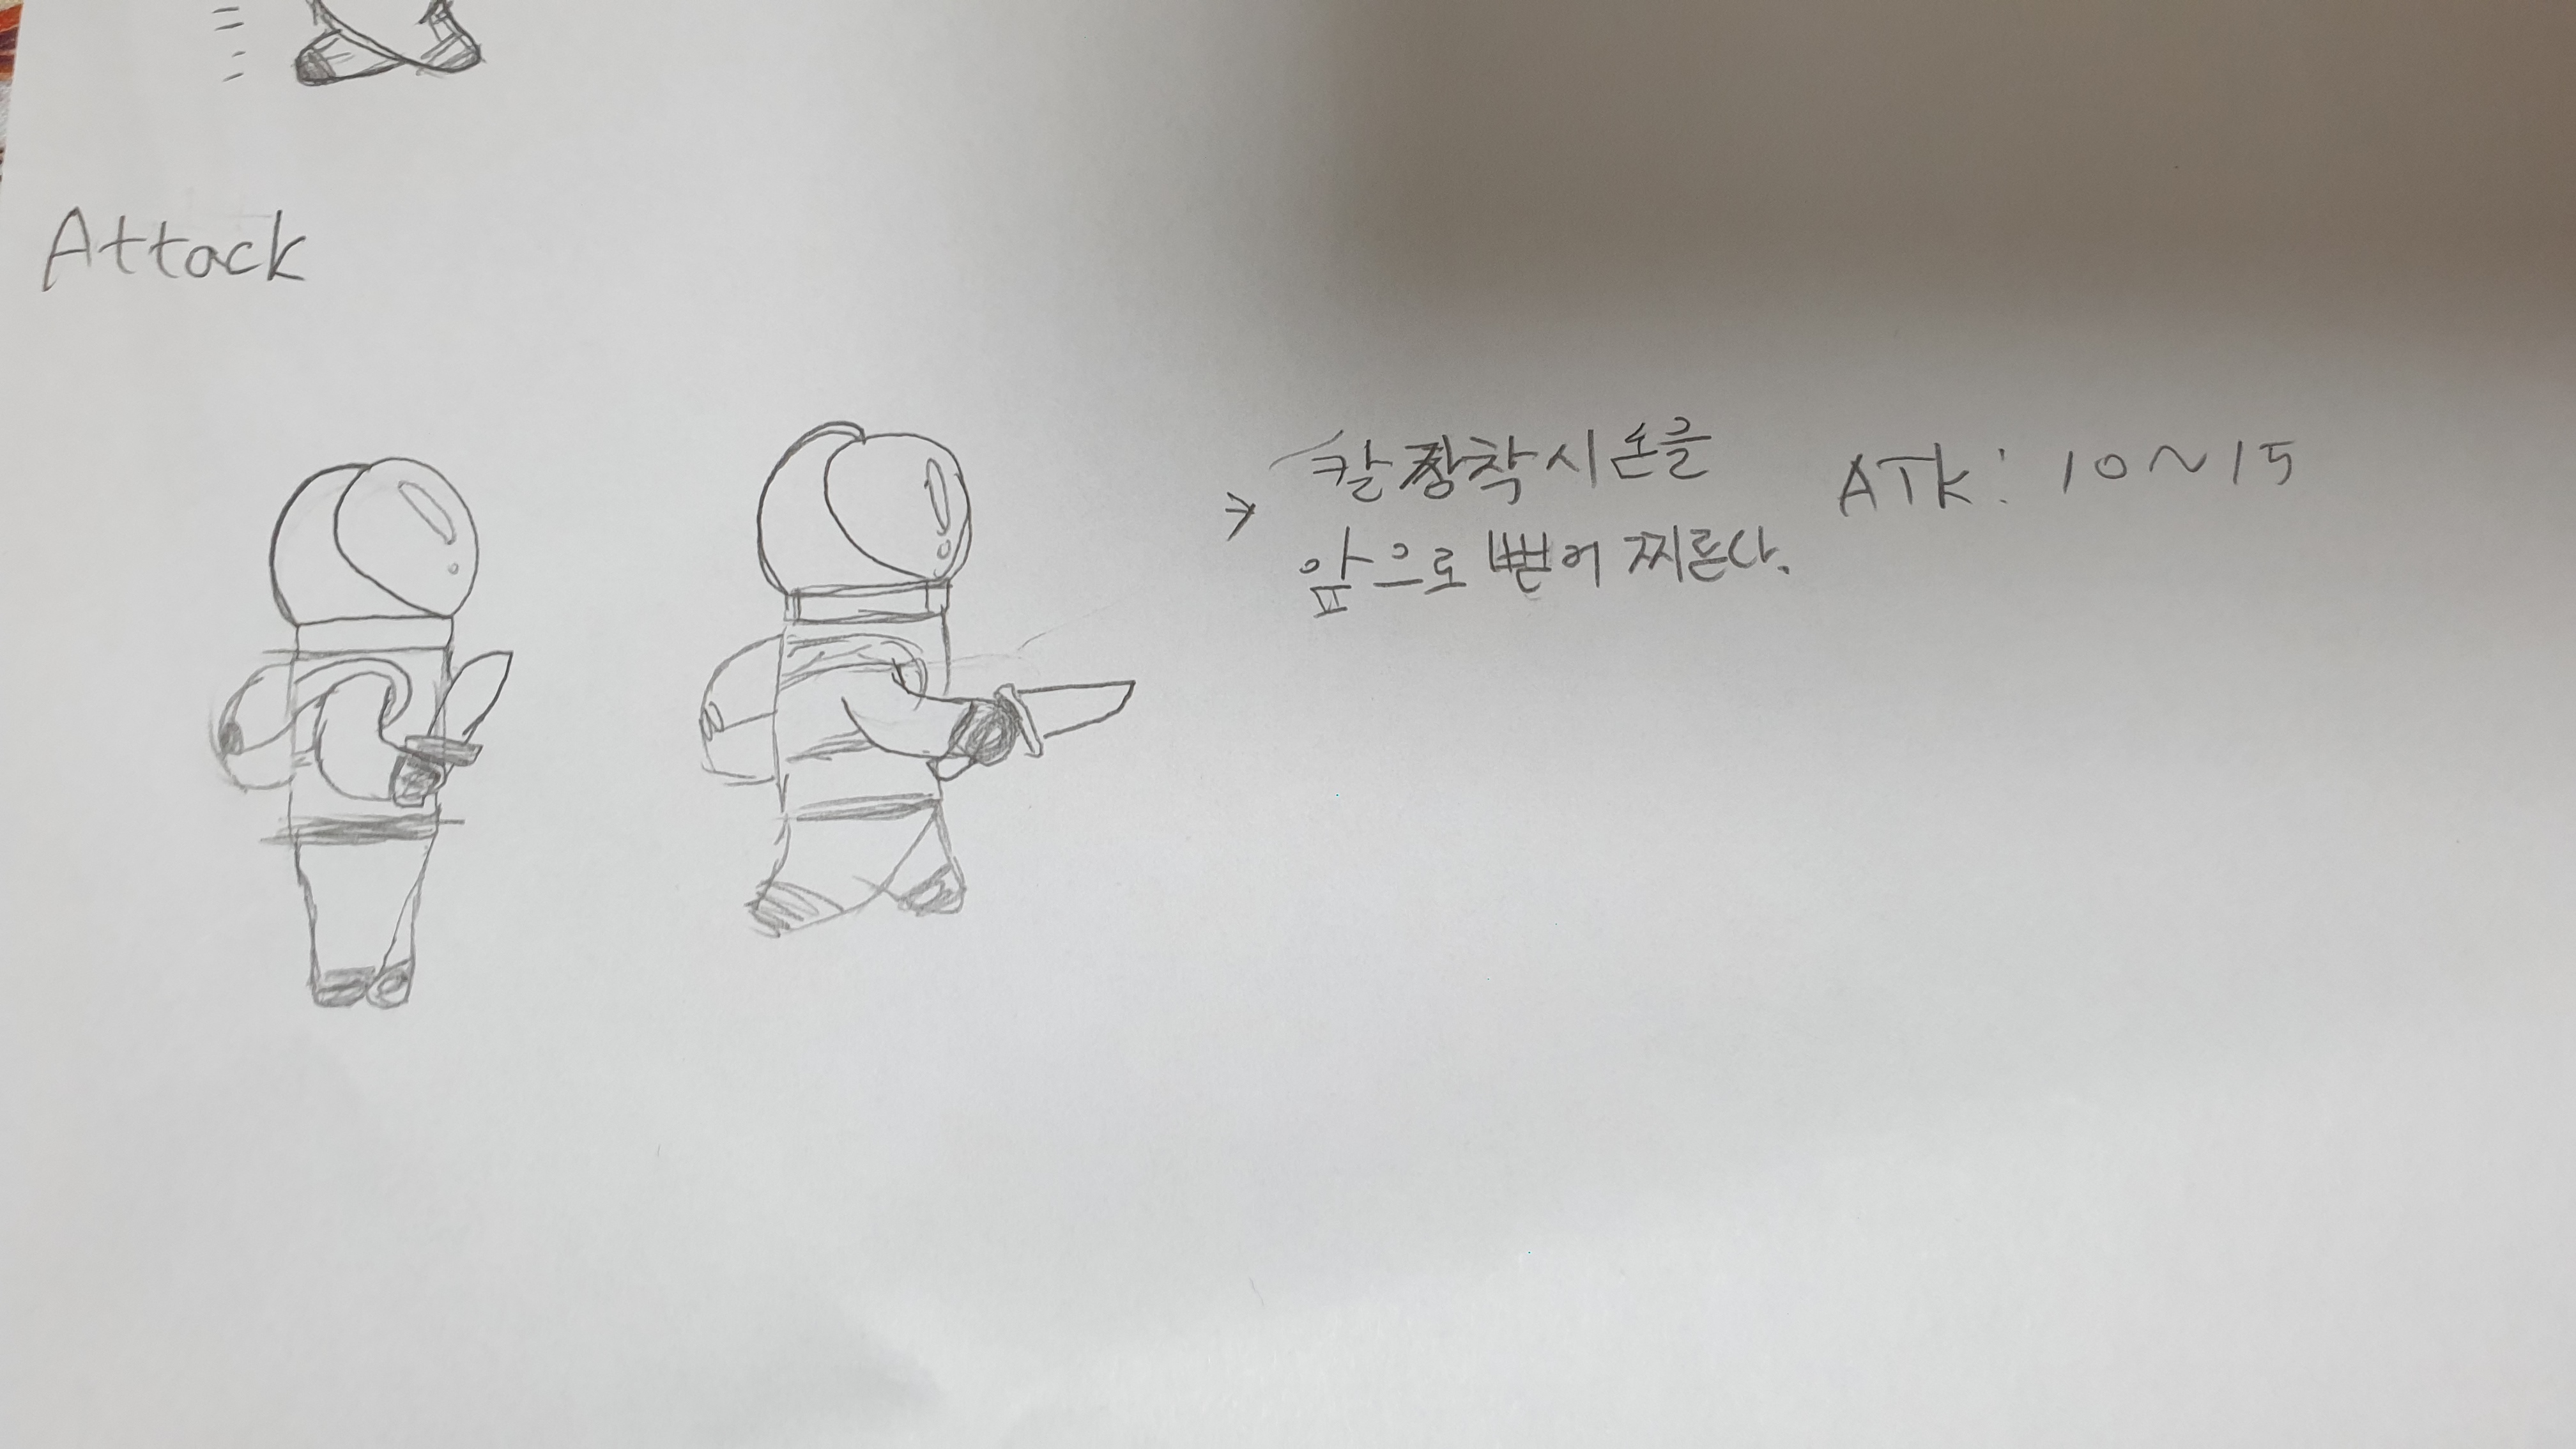 Attack
→ 칼 장착 시 손을
앞으로 뻗어 찌른다.
ATK : 10~15